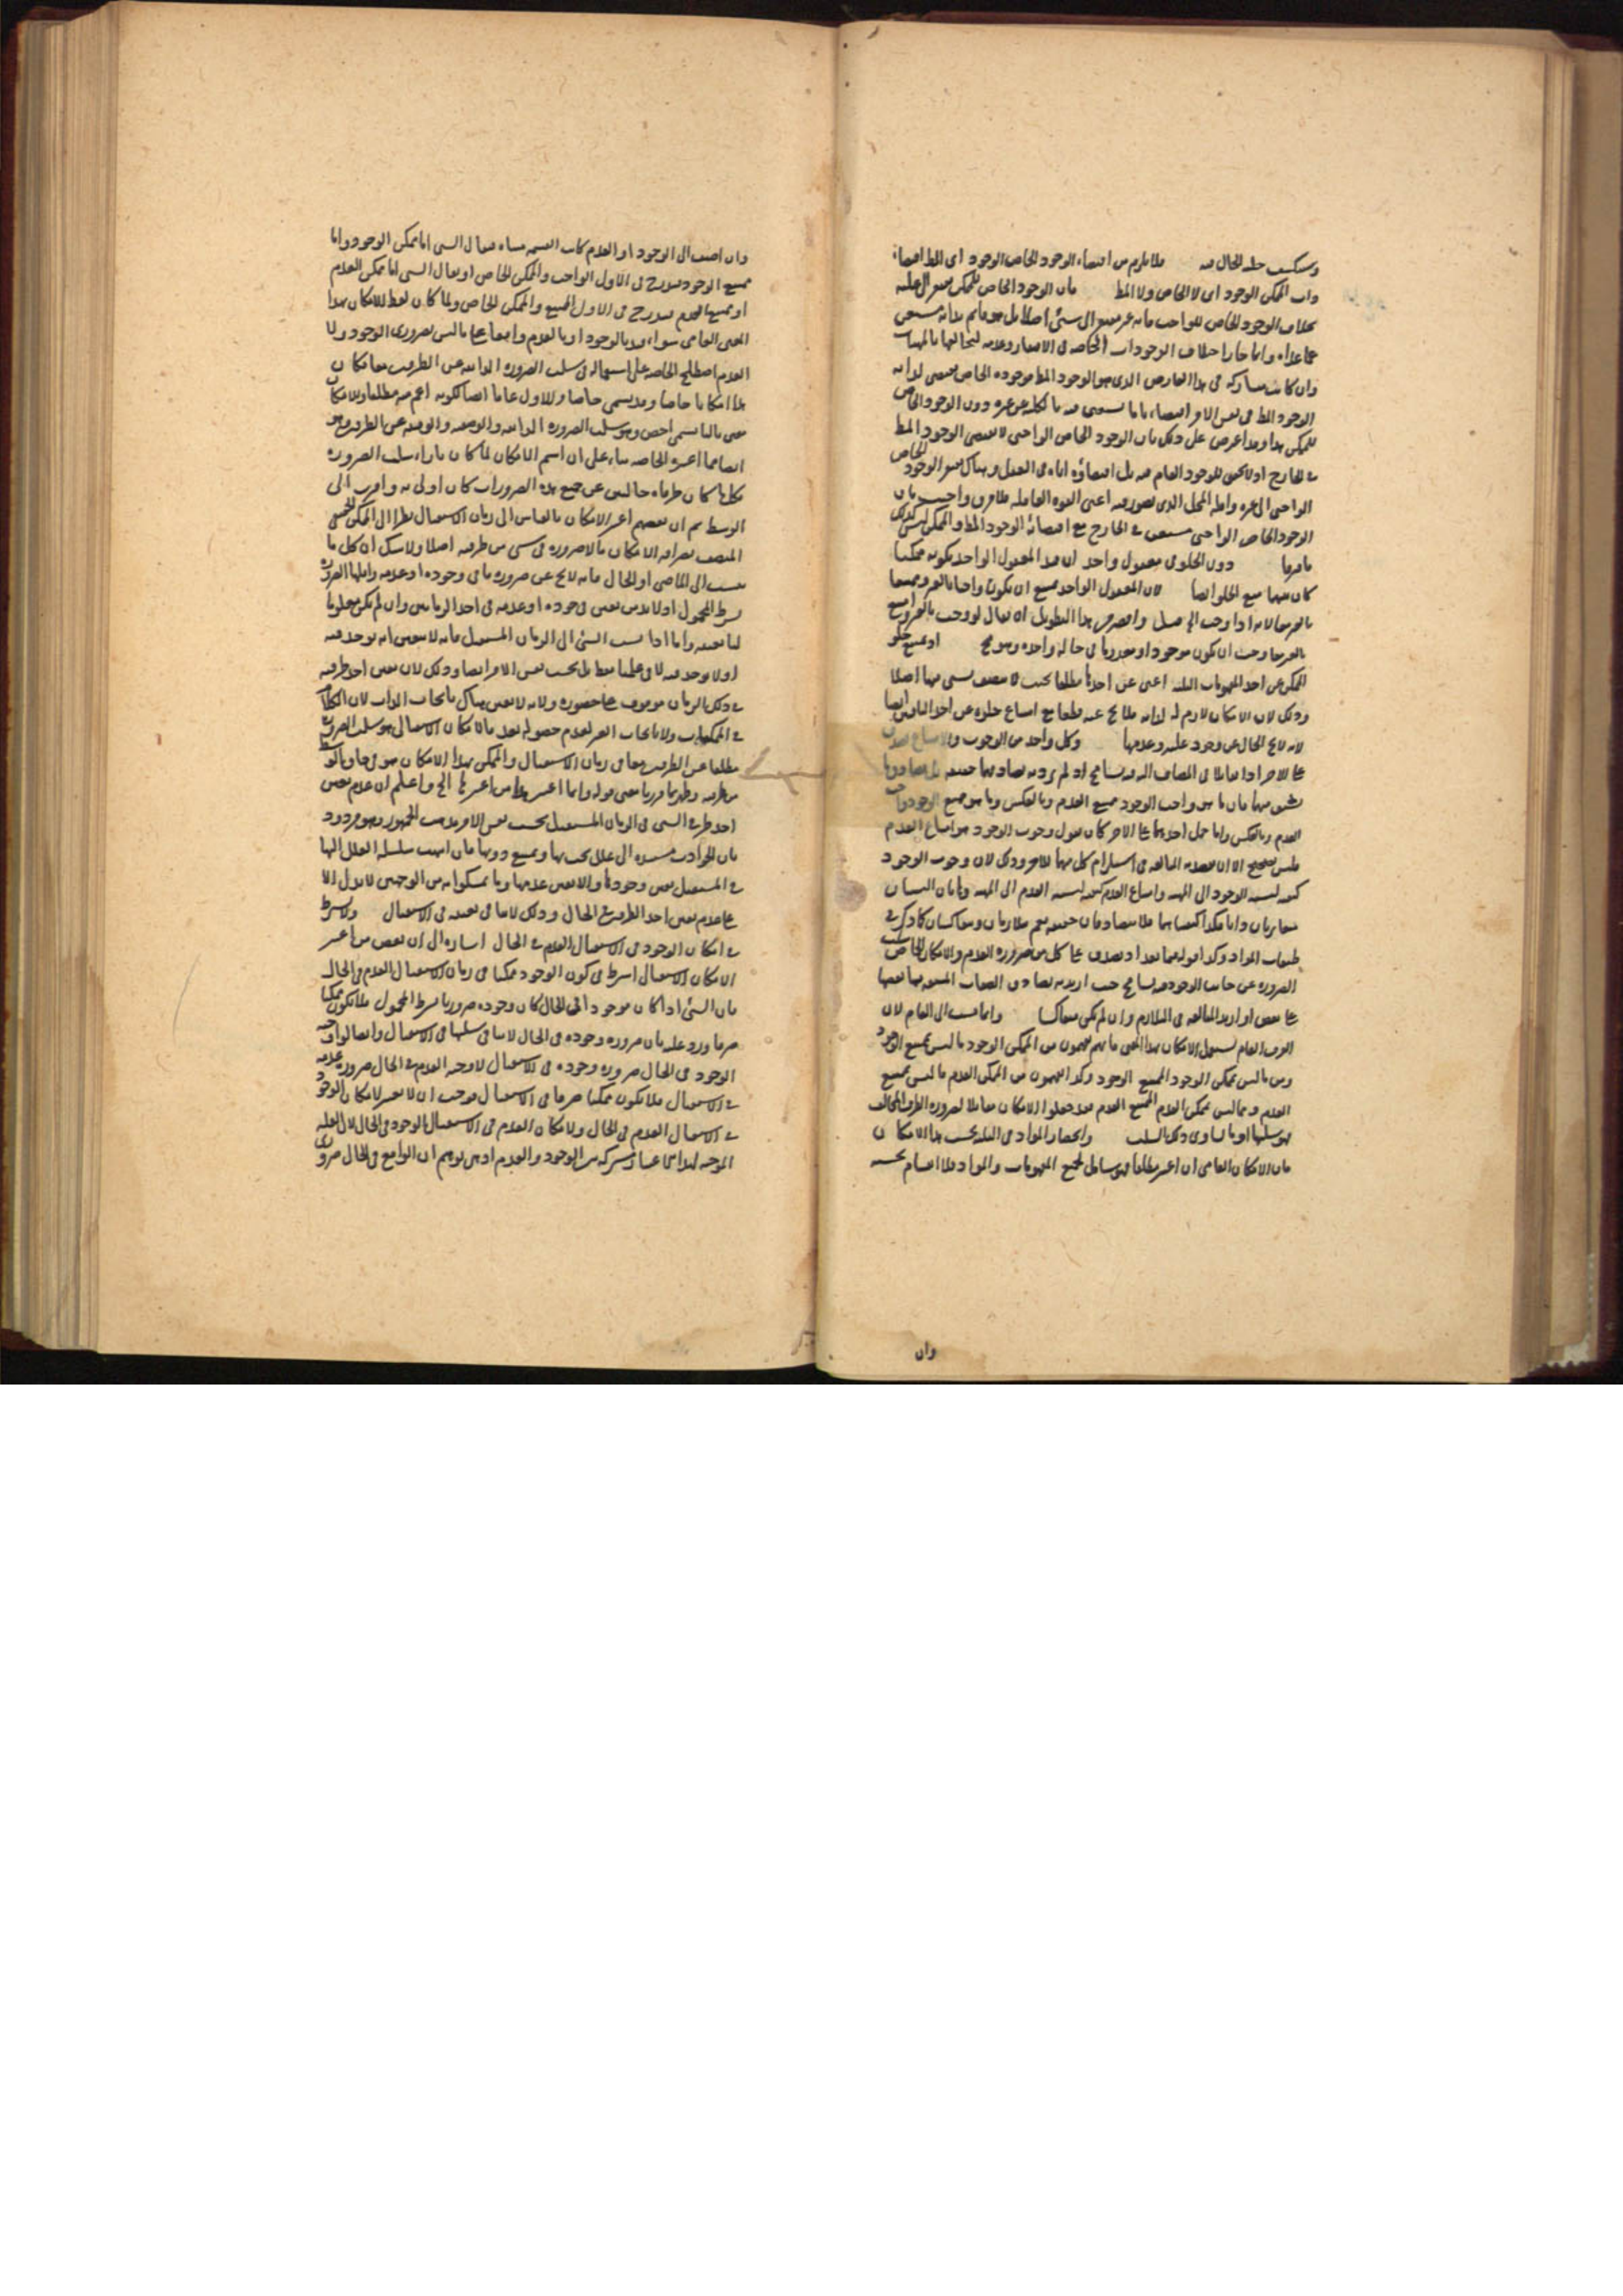 وستكشف جلية الحال فيه فلا يلزم من اقتضاء الوجود الخاص الوجود اى المط اقتضاء
ذات الممكن الوجود اى لا الخاص ولا المط فان الوجود الخاص للممكن مفتقر الى علته
بخلاف الوجود الخاص للواجب فانه غير مفتقر الى شئ اصلا بل هو قائم بذاته مستغن
عما عداه وانما جاز اختلاف الوجودات الخاصة فى الافتقار وعدمه لتخالفها بالمهيات
وان كانت متشاركة فى هذا العارض الذى هو الوجود المط موجوده الخاص يقتضى لذاته
الوجود المط فى نفس الامر اقتضاء تاما يستغنى فيه بالكلية عن غيره دون الوجود الخاص
للممكن هذا وقد اعرض على ذلك بان الوجود الخاص الواجبى لا يقتضى الوجود المط
فى الخارج اذ لا تحقق للوجود العام فيه بل اقتضاؤه اياه فى العقل وهناك يفتقر الوجود الخاص
الواجبى الى غيره واقله المحل الذى يتصور فيه اعنى القوة العاقلة فلا فرق واجيب بان
الوجود الخاص الواجبى مستغن فى الخارج مع اقتضائه الوجود المط والممكن ليس كذلك
فافترقا دون الخلو فى مفعول واحد ان هذا المفعول الواحد يكونه ممكنا
كان بينهما منع الخلو ايضا لان المفعول الواحد يمتنع ان يكون واجبا بالغير وممتنعا
بالغير معا لانه اذا وجب الى فصل واقتصر من هذا التطويل ان يقال لو وجب بالغير وامتنع
بالغير معا وجب ان يكون موجودا ومعدوما فى حالة واحدة وهو مح او يمتنع خلو
الممكن عن احد المفهومات الثلثة اعنى عن احدها مطلقا بحيث لا يتصف بشئ منها اصلا
وذلك لان الامكان لازم له لذاته فلا يخ عنه قطعا مع امتناع خلوه عن احد الباقيين ايضا
لانه لا يخ الحال عن وجود علته وعدمها وكل واحد من الوجوب والامتناع يصدق
على الاخر اذا تقابلا فى المضاف اليه فيه تسامح اذ لم يرد به تصادقهما حقيقة بل تصادق ما
يشتق منهما فان ما هو واجب الوجود ممتنع العدم وبالعكس وما هو ممتنع الوجود واجب
العدم وبالعكس واما حمل احدهما على الاخر كان يقول وجوب الوجود هو امتناع العدم
فليس بصحيح الا ان يقصد به المبالغة فى استلزام كل منهما للاخر وذلك لان وجوب الوجود
كيفية لنسبة الوجود الى المهية وامتناع العدم كيفية لنسبة العدم الى المهية وهاتان النسبتان
متغايرتان وكذا كيفيتاهما فلا يتصادقان حقيقة نعم متلازمان ومتعاكسان كما ذكر فى
طبقات المواد وكذا قوله فيما بعد اذ يصدق على كل من ضرورة العدم والامكان الخاص سلب
الضرورة عن جانب الوجود فيه تسامح حيث اريد به تصادق الصفات المشتقة منها بعضها
على بعض او اريد المبالغة فى التلازم وان لم يكن متعاكسا وانما نسب الى العام لان
العرف العام يستعمل الامكان بهذا المعنى فانهم يفهمون من الممكن الوجود ما ليس بممتنع الوجود
ومن ما ليس بممكن الوجود الممتنع الوجود وكذا يفهمون من الممكن العدم ما ليس بممتنع
العدم ومما ليس بممكن العدم الممتنع العدم فقد جعلوا الامكان مقابلا لضرورة الطرف المخالف
فهو سلبها او ما يساوى ذلك السلب وانحصار المواد فى الثلثة بحسب هذا الامكان
فان الامكان العامى ان اعتبر مطلقا فهو شامل لجميع المفهومات والمواد فلا اقسام بحسبه
وان
وان اضيف الى الوجود او العدم كانت القسمة مثناة فيقال الشئ اما ممكن الوجود واما
ممتنع الوجود فيندرج فى الاول الواجب والممكن الخاص او يقال الشئ اما ممكن العدم
او ممتنع العدم فيندرج فى الاول الممتنع والممكن الخاص ولما كان لفظ الامكان بهذا
المعنى العامى سواء قيد بالوجود او بالعدم واقعا على ما ليس بضرورى الوجود ولا
العدم اصطلح الخاصة على استعماله فى سلب الضرورة الذاتية عن الطرفين معا فكان
هذا امكانا خاصا وقد يسمى خاصيا وللاول عاما ايضا لكونه اعم منه مطلقا وللامكان
معنى ثالث يسمى اخص وهو سلب الضرورة الذاتية والوصفية والوقتية عن الطرفين وهو
ايضا مما اعتبره الخاصة بناء على ان اسم الامكان لما كان بازاء سلب الضرورة
فكلما كان طرفاه خاليين عن جميع هذه الضرورات كان اولى به واقرب الى
الوسط ثم ان بعضهم اعتبر الامكان بالقياس الى زمان الاستقبال نظرا الى الممكن الحقيقى
المتصف بصرافة الامكان ما لا ضرورة فى شئ من طرفيه اصلا ولا شك ان كل ما
نسب الى الماضى او الحال فانه لا يخ عن ضرورة ما فى وجوده او عدمه واقلها الضرورة
بشرط المحمول اذ لا بد من تعين وجوده او عدمه فى احد الزمانين وان لم يكن معلوما
لنا بعينه واما اذا نسب الشئ الى الزمان المستقبل فانه لا يتعين انه يوجد فيه
او لا يوجد فيه لا فى علمنا فقط بل بحسب نفس الامر ايضا وذلك لان تعين احد طرفيه
فى ذلك الزمان موقوف على حضوره ولانه لا تعين هناك بايجاب الذات لان الكلام
فى الممكنات ولا بايجاب الغير لعدم حصوله بعد فالامكان الاستقبالى هو سلب الضرورة
مطلقا عن الطرفين معا فى زمان الاستقبال والممكن بهذا الامكان هو فى حاق الوسط
من طرفيه وظهر بما قررنا معنى قوله وانما اعتبر هذا من اعتبره الخ واعلم ان عدم تعين
احد طرفى الشئ فى الزمان المستقبل بحسب نفس الامر مذهب الجمهور وهو مردود
بان الحوادث مستندة الى علل تجب بها وتمتنع دونها فان انتهت سلسلة العلل اليها
فى المستقبل تعين وجودها والا تعين عدمها وما تمسكوا به من الوجهين لا يدل الا
على عدم تعين احد الطرفين فى الحال وذلك لا ينافى تعينه فى الاستقبال ولا يشترط
فى امكان الوجود فى الاستقبال العدم فى الحال اشارة الى ان بعض من اعتبر
الامكان الاستقبالى اشترط فى كون الوجود ممكنا فى زمان الاستقبال العدم فى الحال
فان الشئ اذا كان موجودا فى الحال كان وجوده ضروريا بشرط المحمول فلا يكون ممكنا
صرفا ورد عليه بان ضرورة وجوده فى الحال لا ينافى سلبها فى الاستقبال وايضا لو اوجب
الوجود فى الحال ضرورة وجوده فى الاستقبال لاوجب العدم فى الحال ضرورة عدمه
فى الاستقبال فلا يكون ممكنا صرفا فى الاستقبال فوجب ان لا يعتبر لامكان الوجود
فى الاستقبال العدم فى الحال ولا لامكان العدم فى الاستقبال الوجود فى الحال لان العلة
الموجبة لهذا الاعتبار مشتركة بين الوجود والعدم اذ هى توهم ان الواقع فى الحال ضرورى